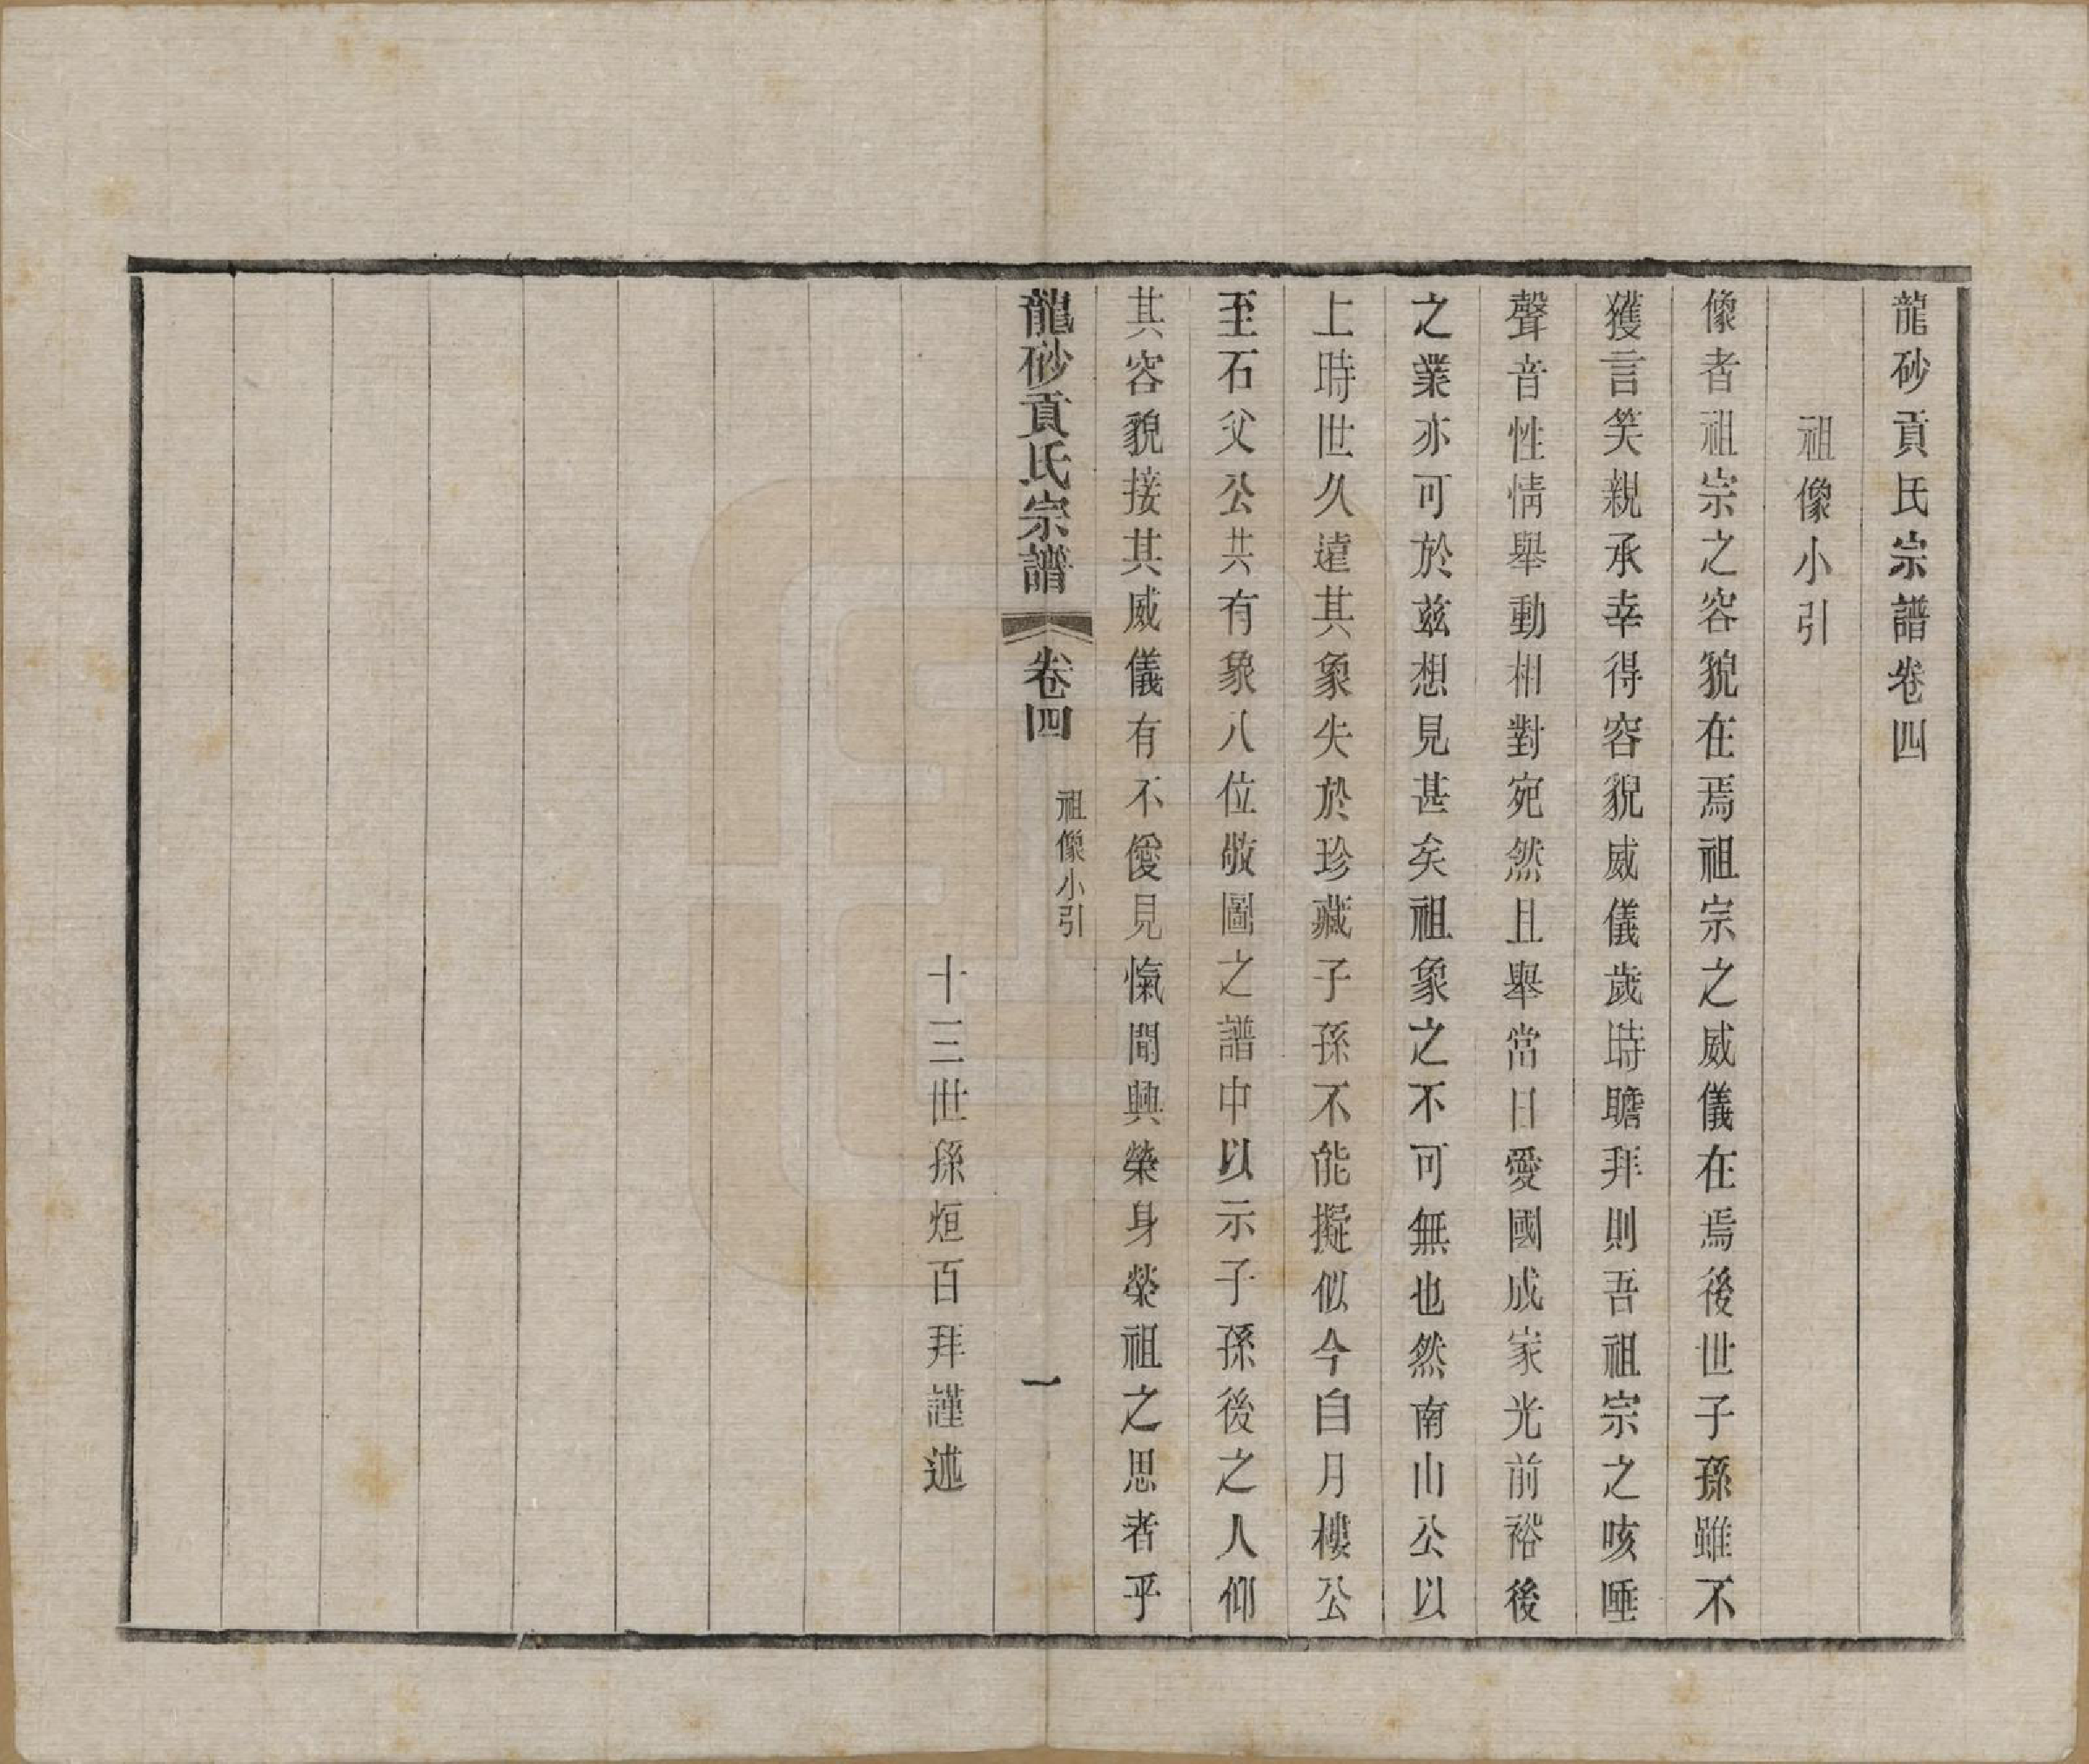 龍砂貢氏宗譜卷四
祖像小引
像者祖宗之容貌在焉祖宗之威儀在焉後世子孫雖不
獲言笑親承幸得容貌威儀歲時瞻拜則吾祖宗之咳唾
聲音性情舉動相對宛然且舉當日愛國成家光前裕後
之業亦可於茲想見甚矣祖象之不可無也然南山公以
上時世久遠其象失於珍藏子孫不能擬似今自月樓公
至石父公共有象八位敬圖之譜中以示子孫後之人仰
其容貌接其威儀有不僾見愾聞興榮身榮祖之思者乎
龍砂貢氏宗譜 卷四 祖像小引 一
十三世孫烜百拜謹述